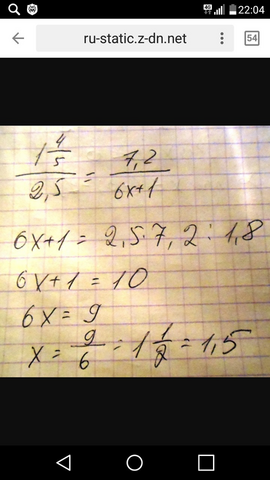 22:04
ru-static.z-dn.net
54
1 4/5 / 2,5 = 7,2 / 6x+1
6x+1 = 2,5·7,2 : 1,8
6x+1 = 10
6x = 9
x = 9/6 = 1 1/2 = 1,5